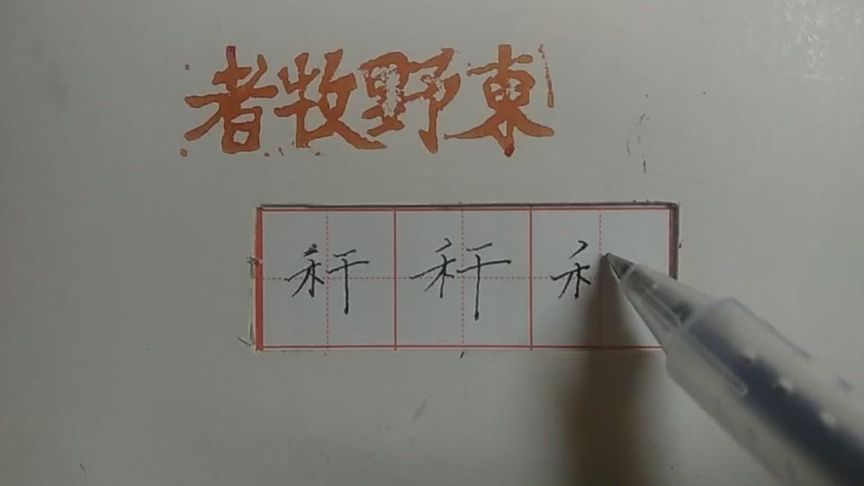 東野牧者
秆秆禾